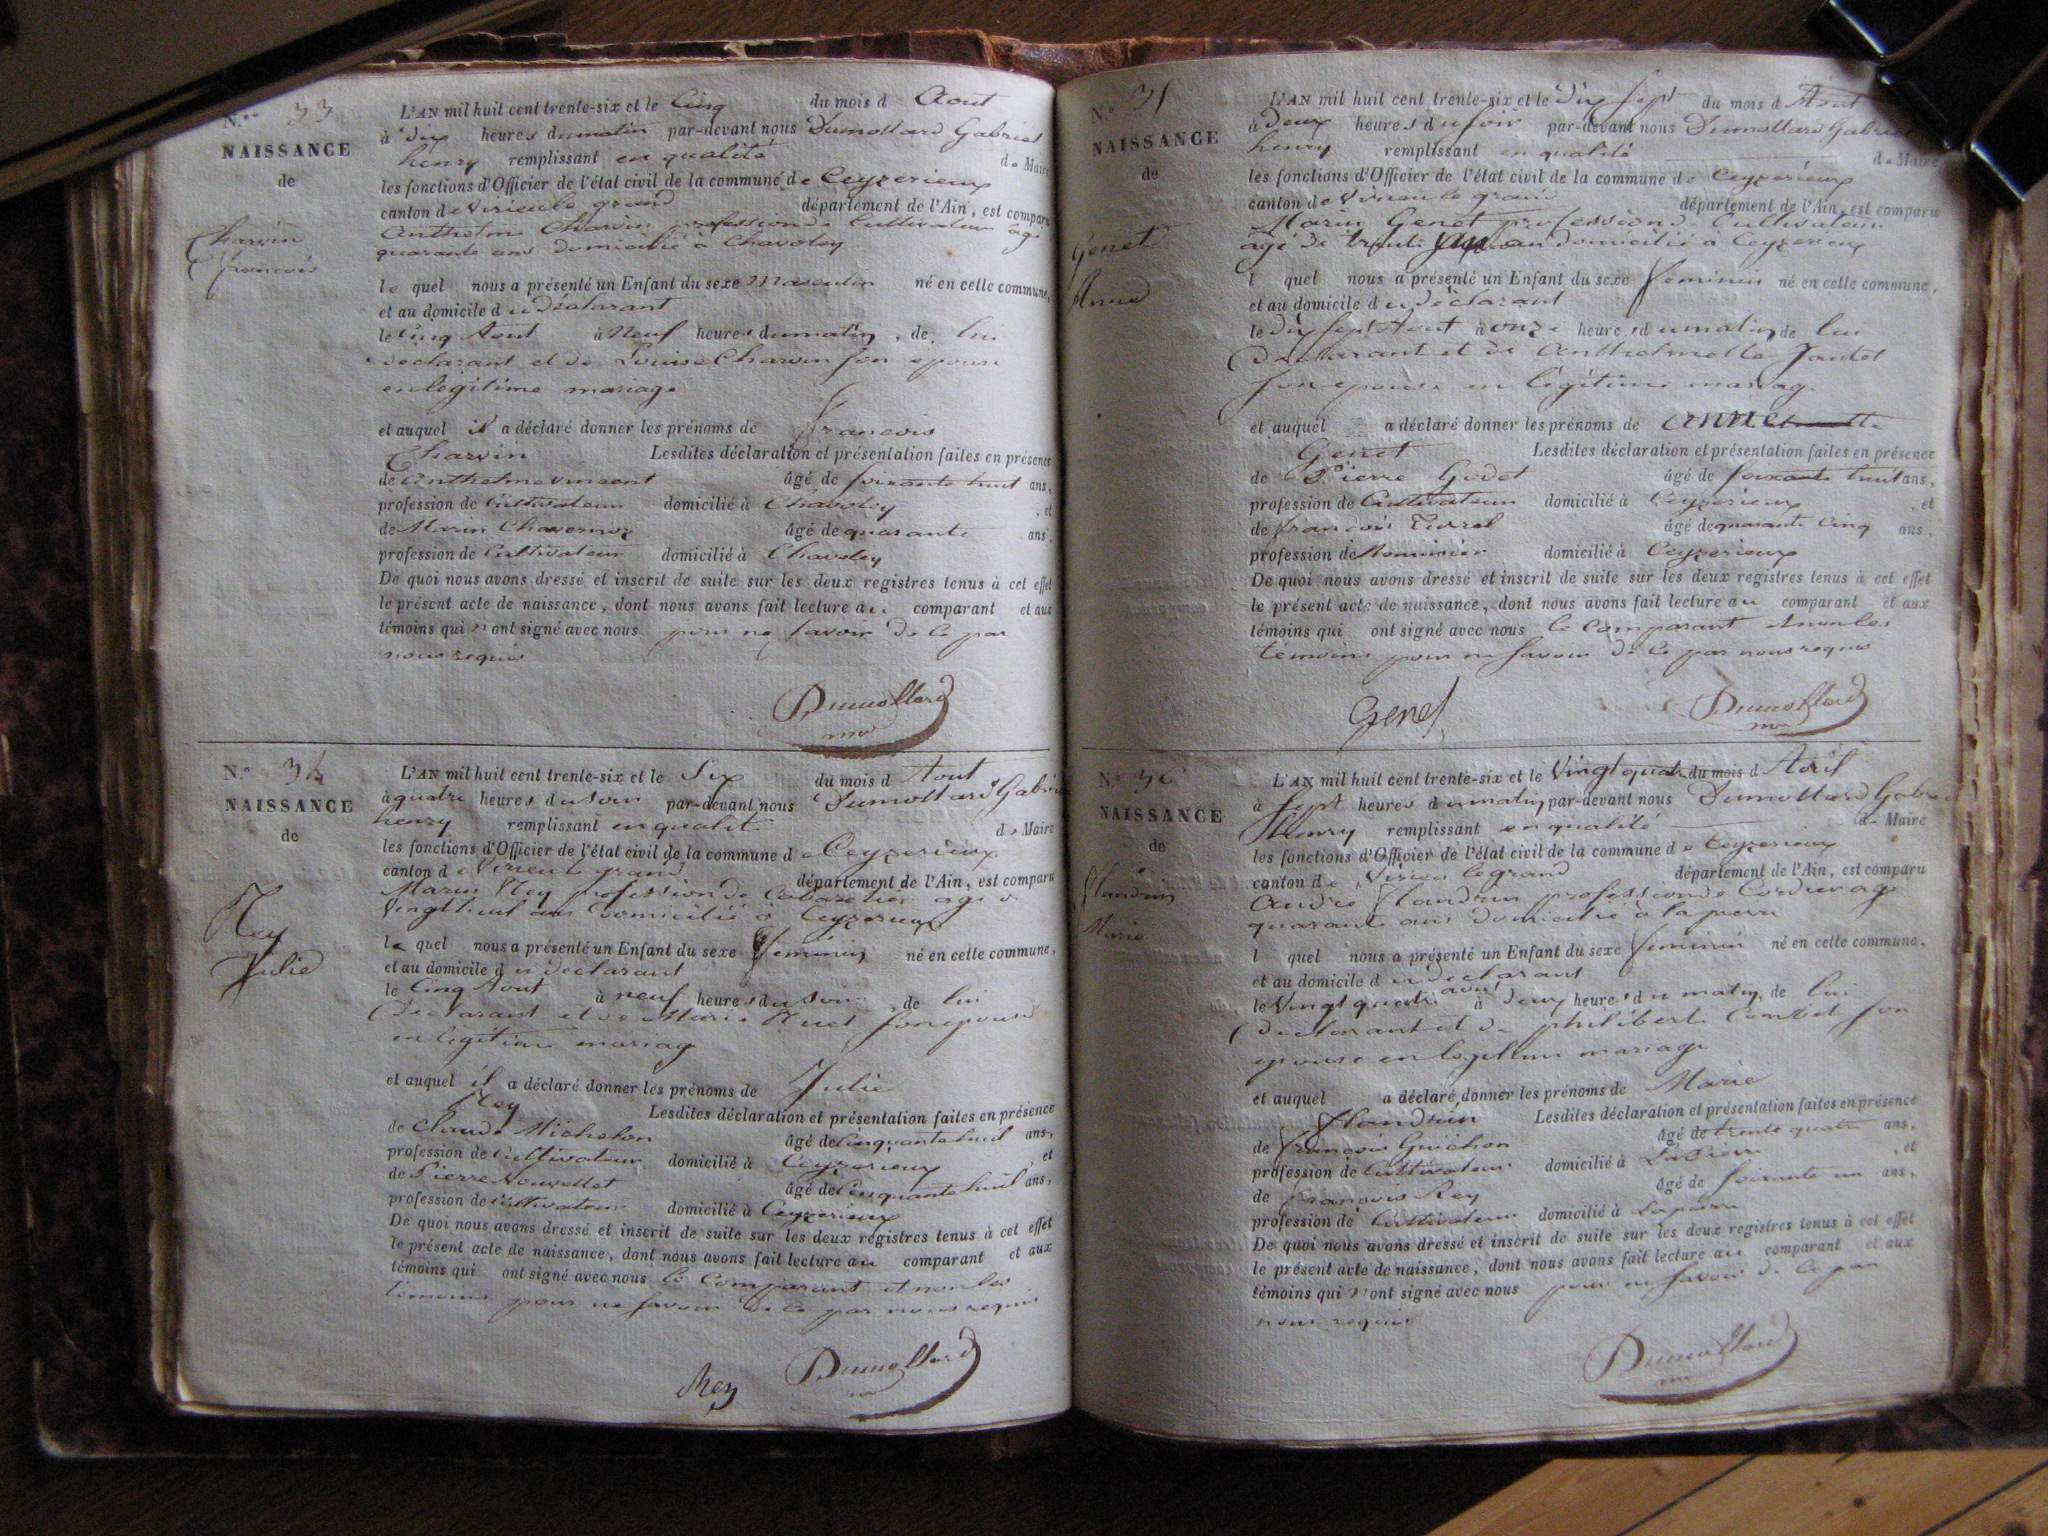 N.° 33
NAISSANCE
de
Charvin
françois
L'AN mil huit cent trente-six et le Cinq du mois d Aout
à dix heures du matin par-devant nous Dumollard Gabriel
henry remplissant en qualité de Maire
les fonctions d'Officier de l'état civil de la commune de Ceyzerieux
canton de Virieu le grand département de l'Ain, est comparu
Anthelme Charvin profession de Cultivateur agé
quarante ans domicilié a Chavoley
le quel nous a présenté un Enfant du sexe Masculin né en cette commune,
et au domicile du déclarant
le Cinq Aout à Neuf heures du matin, de lui
declarant et de Louise Charvin son epouse
en legitime mariage
et auquel il a déclaré donner les prénoms de francois
Charvin Lesdites déclaration et présentation faites en présence
de Anthelme Vincent âgé de soixante huit ans,
profession de Cultivateur domicilié à Chavoley, et
de Marin âgé de quarante ans,
profession de Cultivateur domicilié à Chavoley
De quoi nous avons dressé et inscrit de suite sur les deux registres tenus à cet effet
le présent acte de naissance, dont nous avons fait lecture au comparant et aux
témoins qui n'ont signé avec nous pour ne savoir de ce par
nous requis
Dumollard
N.° 34
NAISSANCE
de
Rey
Julie
L'AN mil huit cent trente-six et le Six du mois d Aout
à quatre heures du soir par-devant nous Dumollard Gabriel
henry remplissant en qualité de Maire
les fonctions d'Officier de l'état civil de la commune de Ceyzerieux
canton de Virieu le grand département de l'Ain, est comparu
Marin Rey profession de Cabaretier agé de
vingt huit ans domicilié à Ceyzerieux
le quel nous a présenté un Enfant du sexe féminin né en cette commune,
et au domicile du declarant
le Cinq Aout à neuf heures du soir, de lui
declarant et de Marie son epouse
en légitime mariage
et auquel il a déclaré donner les prénoms de Julie
Rey Lesdites déclaration et présentation faites en présence
de Claude Michelon âgé de Cinquante huit ans,
profession de Cultivateur domicilié à Ceyzerieux, et
de Pierre Nouvellet âgé de Cinquante huit ans,
profession de Cultivateur domicilié à Ceyzerieux
De quoi nous avons dressé et inscrit de suite sur les deux registres tenus à cet effet
le présent acte de naissance, dont nous avons fait lecture au comparant et aux
témoins qui ont signé avec nous le Comparant et non les
témoins pour ne savoir de ce par nous requis
Rey Dumollard
N.° 35
NAISSANCE
de
Genet
Anne
L'AN mil huit cent trente-six et le dix sept du mois d Aout
à deux heures du soir par-devant nous Dumollard Gabriel
henry remplissant en qualité de Maire
les fonctions d'Officier de l'état civil de la commune de Ceyzerieux
canton de Virieu le grand département de l'Ain, est comparu
Marin Genet profession de Cultivateur
agé de trente an domicilié a Ceyzerieux
l quel nous a présenté un Enfant du sexe féminin né en cette commune,
et au domicile du déclarant
le dix sept Aout à onze heures du matin, de lui
declarant et de Anthelmette Jantet
son epouse en légitime mariage
et auquel a déclaré donner les prénoms de anne
Genet Lesdites déclaration et présentation faites en présence
de Pierre Godet âgé de soixante huit ans,
profession de Cultivateur domicilié à Ceyzerieux, et
de françois âgé de quarante Cinq ans,
profession de Menuisier domicilié à Ceyzerieux
De quoi nous avons dressé et inscrit de suite sur les deux registres tenus à cet effet
le présent acte de naissance, dont nous avons fait lecture au comparant et aux
témoins qui ont signé avec nous le Comparant et non les
témoins pour ne savoir de ce par nous requis
Genet Dumollard
N.° 36
NAISSANCE
de
flandrin
Marie
L'AN mil huit cent trente-six et le Vingt quatre du mois d Avril
à sept heures du matin par-devant nous Dumollard Gabriel
Henry remplissant en qualité de Maire
les fonctions d'Officier de l'état civil de la commune de Ceyzerieux
canton de Virieu le grand département de l'Ain, est comparu
André flandrin profession de Cordier agé
quarante ans domicilié à la pierre
l quel nous a présenté un Enfant du sexe féminin né en cette commune,
et au domicile du declarant
le Vingt quatre aout à deux heures du matin, de lui
declarant et de philiberte Combet son
epouse en legitime mariage
et auquel a déclaré donner les prénoms de Marie
flandrin Lesdites déclaration et présentation faites en présence
de françois Guichon âgé de trente quatre ans,
profession de Cultivateur domicilié à La Pierre, et
de françois Rey âgé de soixante un ans,
profession de Cultivateur domicilié à Lapierre
De quoi nous avons dressé et inscrit de suite sur les deux registres tenus à cet effet
le présent acte de naissance, dont nous avons fait lecture au comparant et aux
témoins qui n'ont signé avec nous pour ne savoir de ce par
nous requis
Dumollard